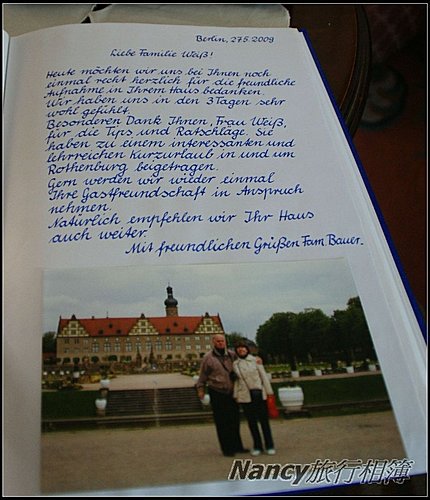 Berlin, 27.5.2009
Liebe Familie Weiß!
Heute möchten wir uns bei Ihnen noch
einmal recht herzlich für die freundliche
Aufnahme in Ihrem Haus bedanken.
Wir haben uns in den 3 Tagen sehr
wohl gefühlt.
Besonderen Dank Ihnen, Frau Weiß,
für die Tips und Ratschläge. Sie
haben zu einem interessanten und
lehrreichen Kurzurlaub in und um
Rothenburg beigetragen.
Gern werden wir wieder einmal
Ihre Gastfreundschaft in Anspruch
nehmen.
Natürlich empfehlen wir Ihr Haus
auch weiter.
Mit freundlichen Grüßen Fam. Bauer.
Nancy旅行相簿